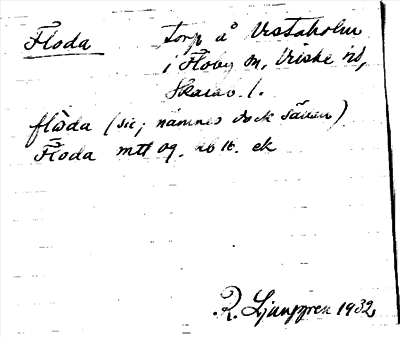 Floda torp å Vistaholm
i Floby sn, Vilske hd,
Skarab. l.
flòda (sic; nämnes dock sällan)
Floda mtl og. nb 16. ek
R. Ljunggren 1932